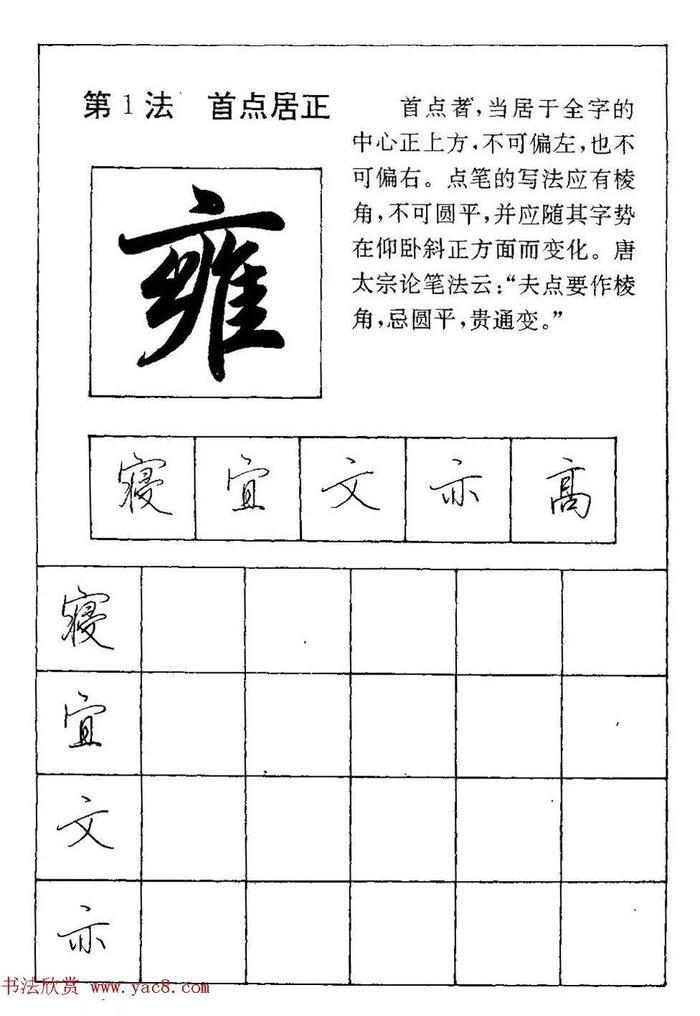 第1法 首点居正
首点者,当居于全字的
中心正上方,不可偏左,也不
可偏右。点笔的写法应有棱
角,不可圆平,并应随其字势
在仰卧斜正方面而变化。唐
太宗论笔法云:“夫点要作棱
角,忌圆平,贵通变。”
雍
寝 宜 文 亦 高
寝
宜
文
亦
书法欣赏 www.yac8.com